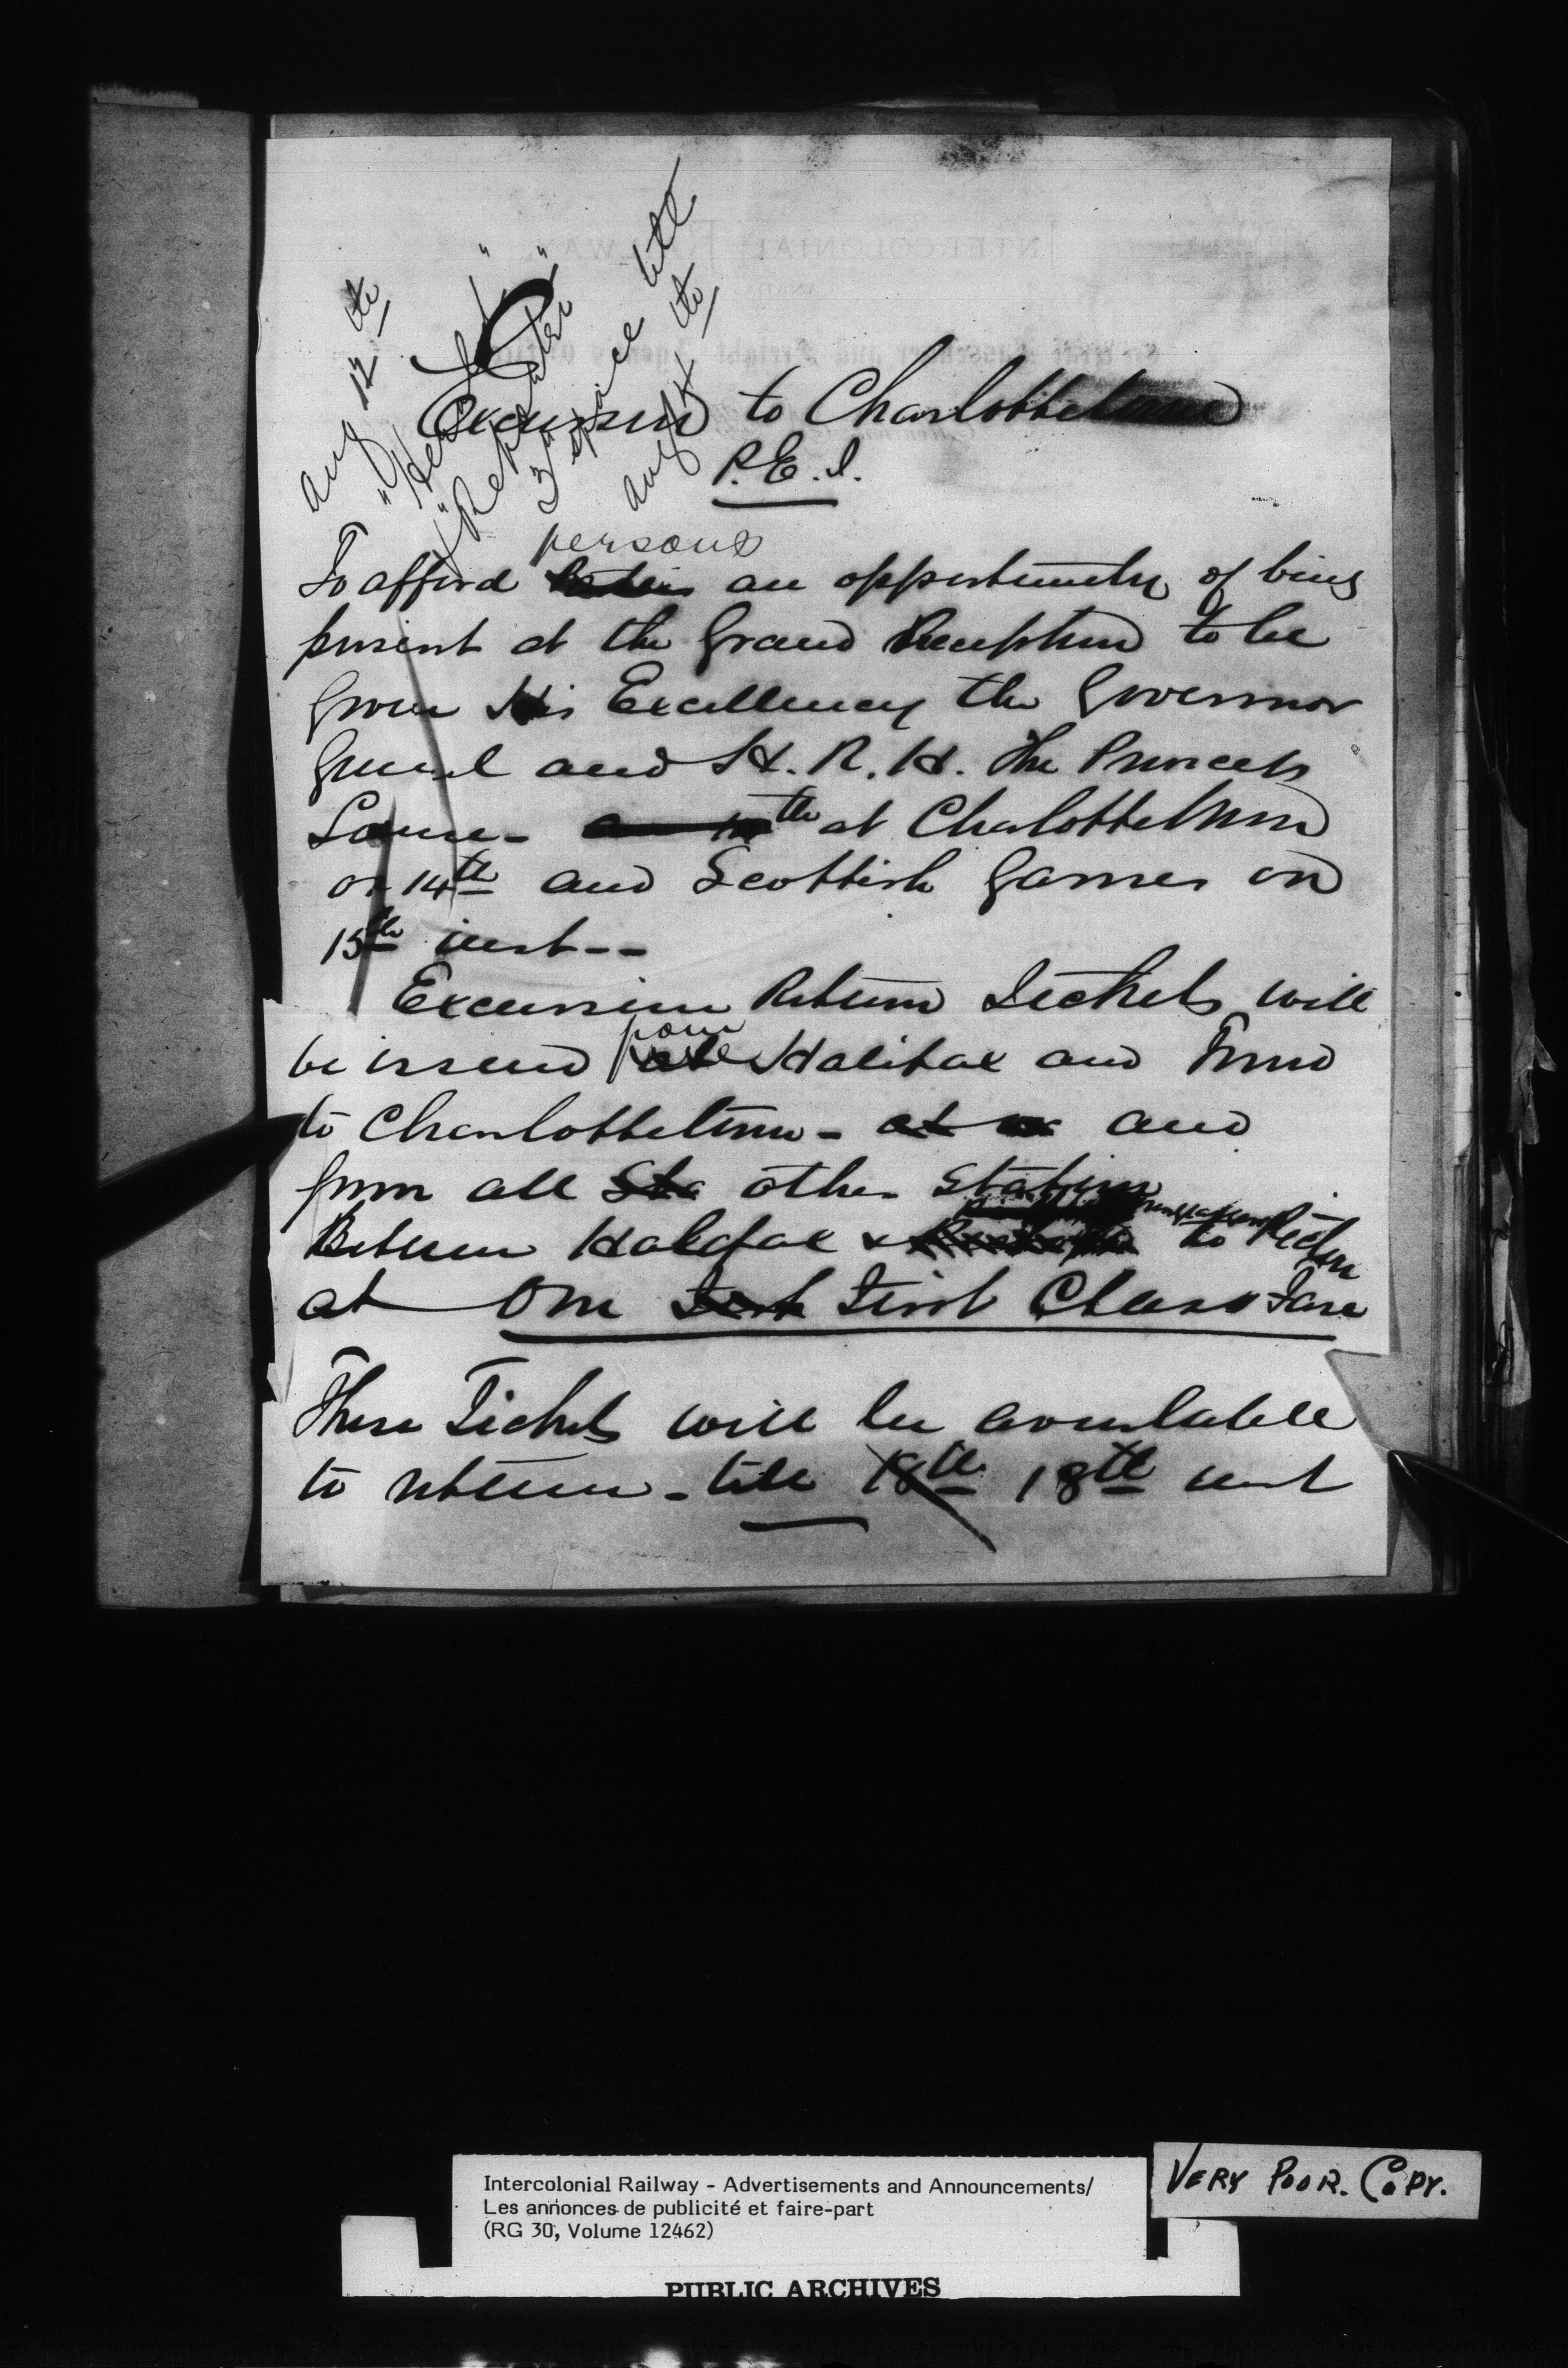 Aug 12th
"Herald"
"Reporter"
3 space till
Aug 14th
Excursion to Charlottetown
P.E.I.
persons
To afford an opportunity of being
present at the Grand Reception to be
given His Excellency the Governor
General and H.R.H. The Princess
Louise - th at Charlottetown
on 14th and Scottish Games on
15th inst--
Excursion Return Tickets will
from
be issued at Halifax and Truro
to Charlottetown - at and
from all Sta other Stations
Between Halifax & to Pictou
at One First Class Fare
These Tickets will be available
to return - till 18th 18th inst
Intercolonial Railway - Advertisements and Announcements/
Les annonces de publicité et faire-part
(RG 30, Volume 12462)
VERY POOR. COPY.
PUBLIC ARCHIVES